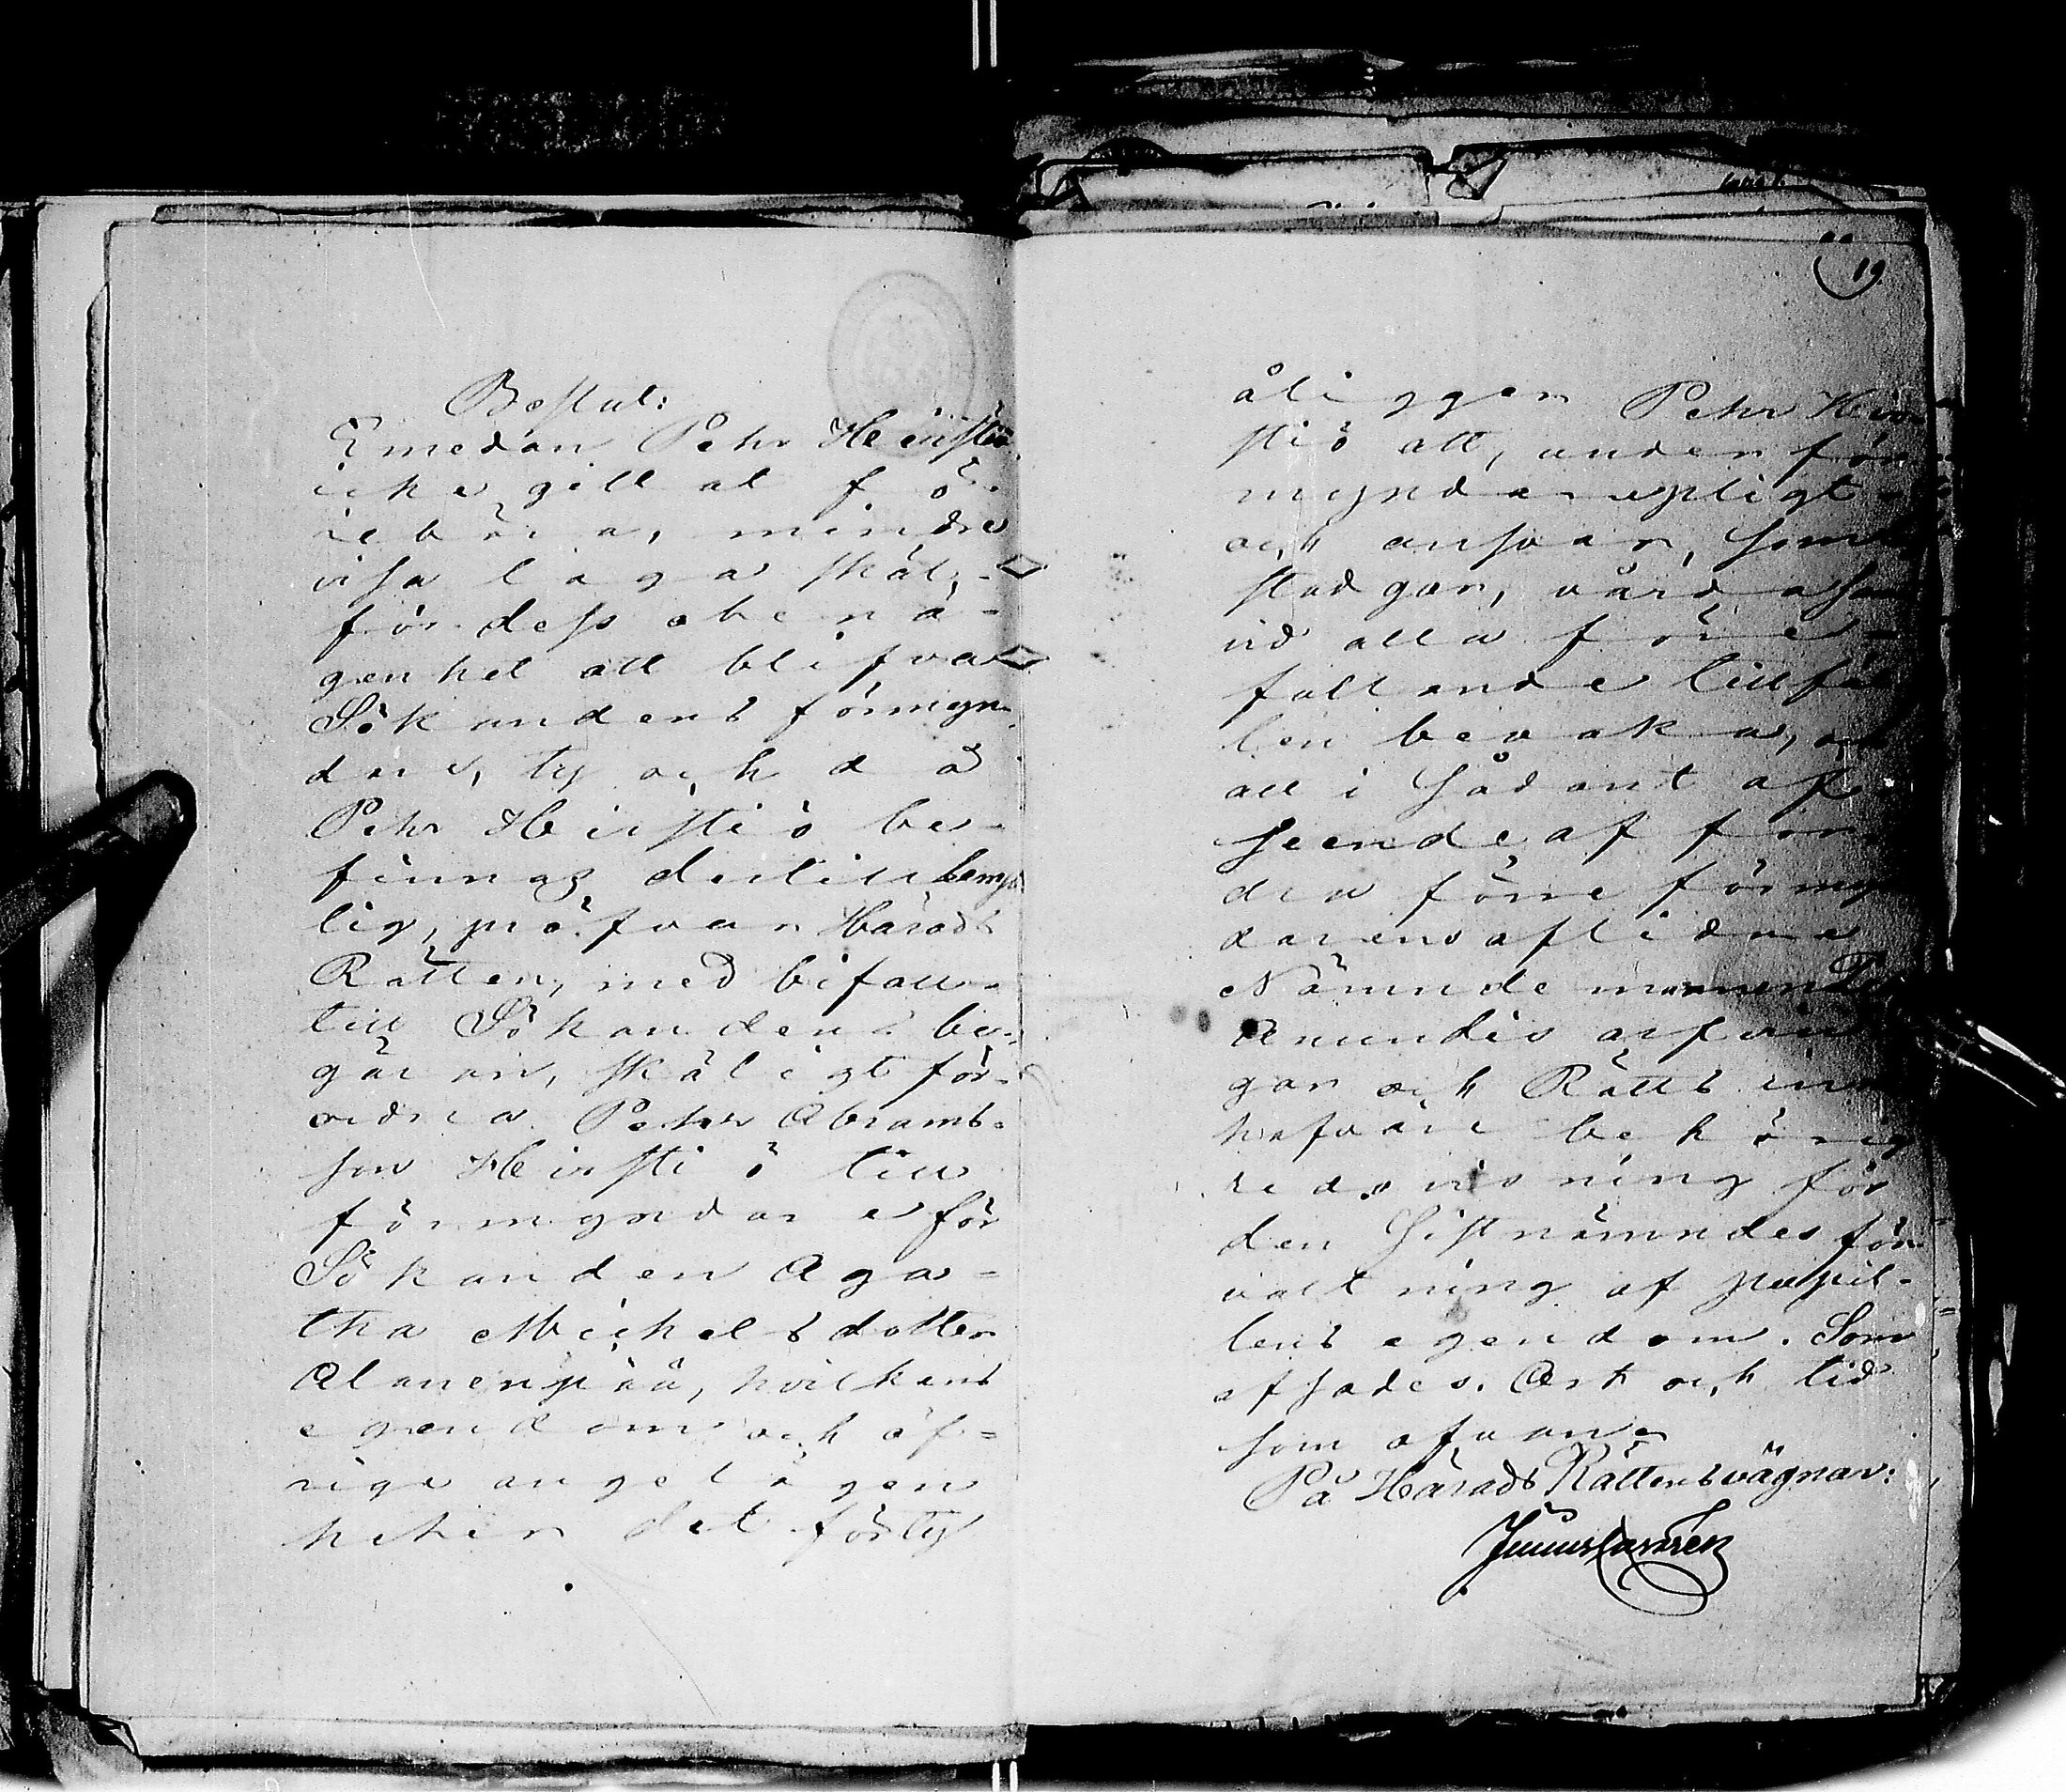 Beslut:
Emedan Pehr Heinstiö
icke gittat fö-
rebära, mindre
visa laga skäl,
för dess obenä-
genhet att blifva
Sökandens förmyn-
dare, ty och då
Pehr Heinstiö be-
finnas dertill lämp-
lig, pröfvar Härads
Rätten, med bifall
till Sökandens be-
gäran, skäligt för-
ordna Pehr Abrams-
son Heinstiö till
förmyndare för
Sökanden Aga-
tha Michelsdotter
Alanenpää, hvilkens
egendom och öf-
riga angelägen
heter det förty
19.
åligger Pehr Hein-
stiö att, under för
myndarepligt
och ansvar, som
stadgar, vårda samt
vid alla före-
fallande tillfäl
len bevaka, och
att i sådant af-
seende af från
dra förre förmyn
darens aflidne
Nämndemannen
Anundis arfvin
gar och Rätts inne
hafvare behörig
redovisning för
den Sistnämndes för
valtning af pupil-
lens egendom. Som
afsades. Ort och tid
som ofvan.
På Härads Rättens vägnar: